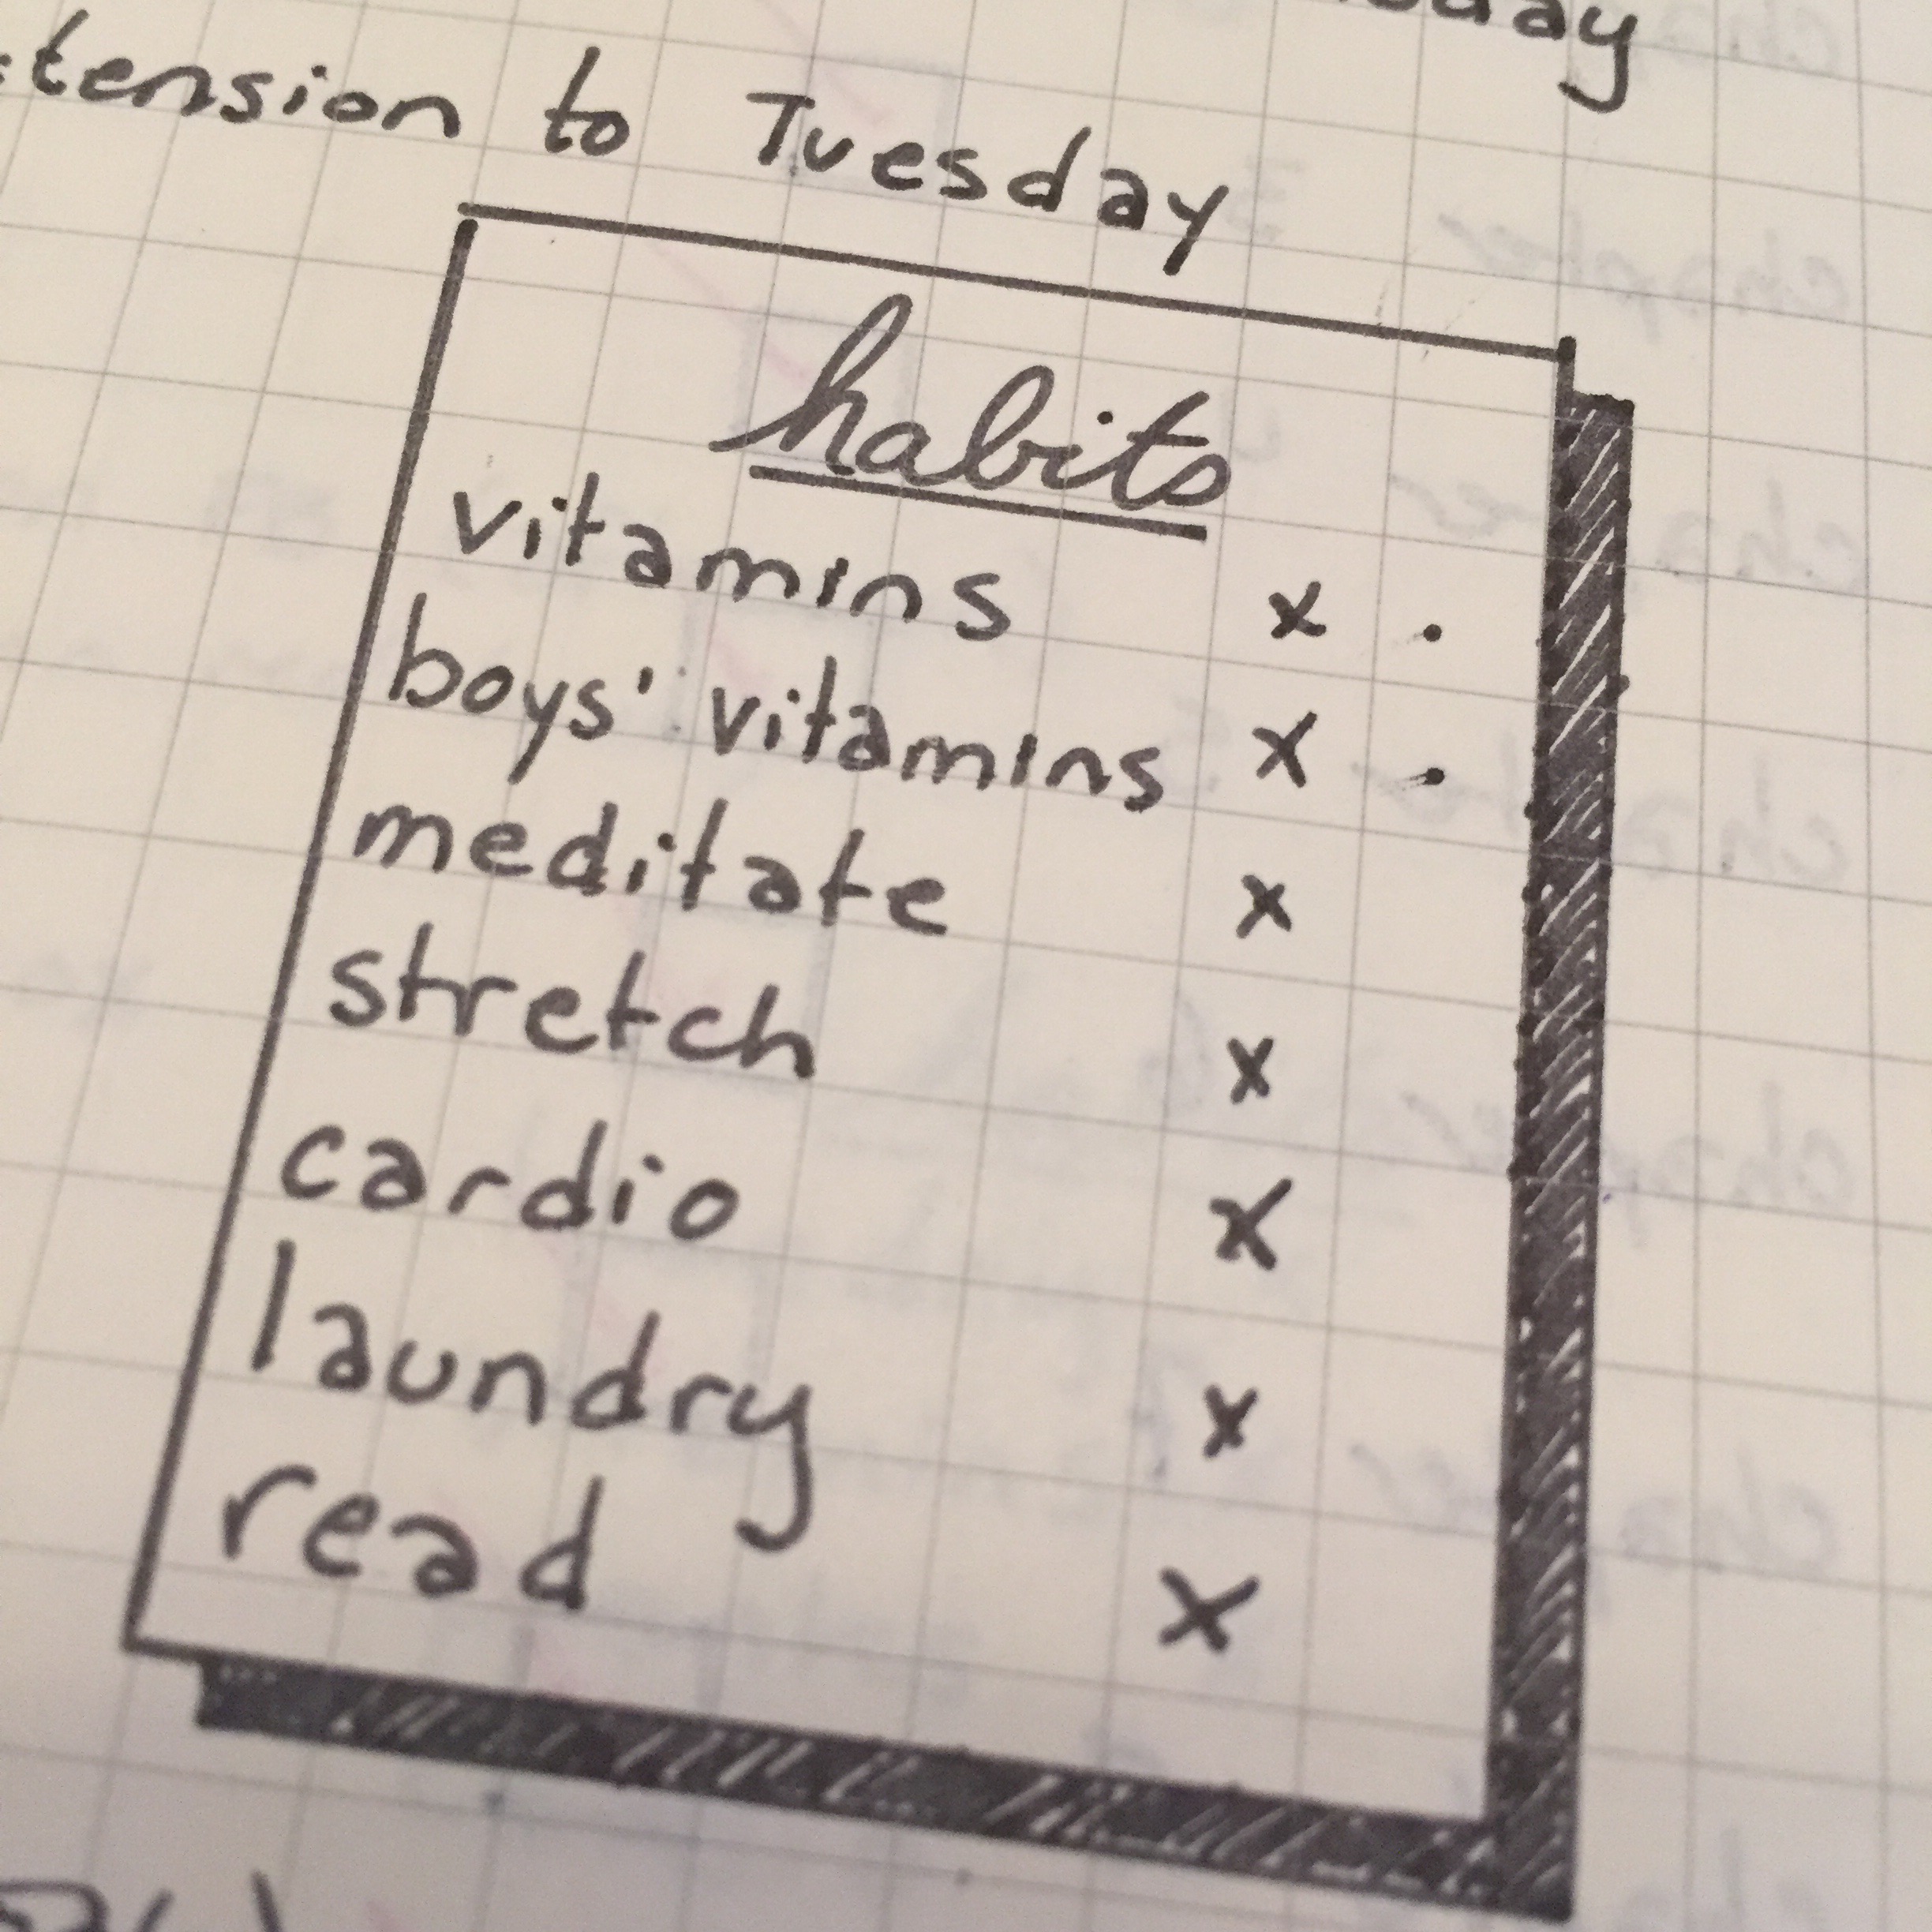 tension to Tuesday
habits
vitamins x .
boys' vitamins x .
meditate x
stretch x
cardio x
laundry x
read x